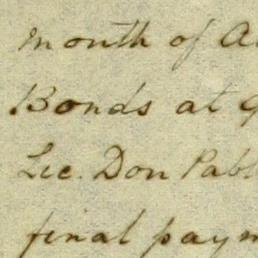 month of A
Bonds at 9
Lic. Don Pabl
final paym